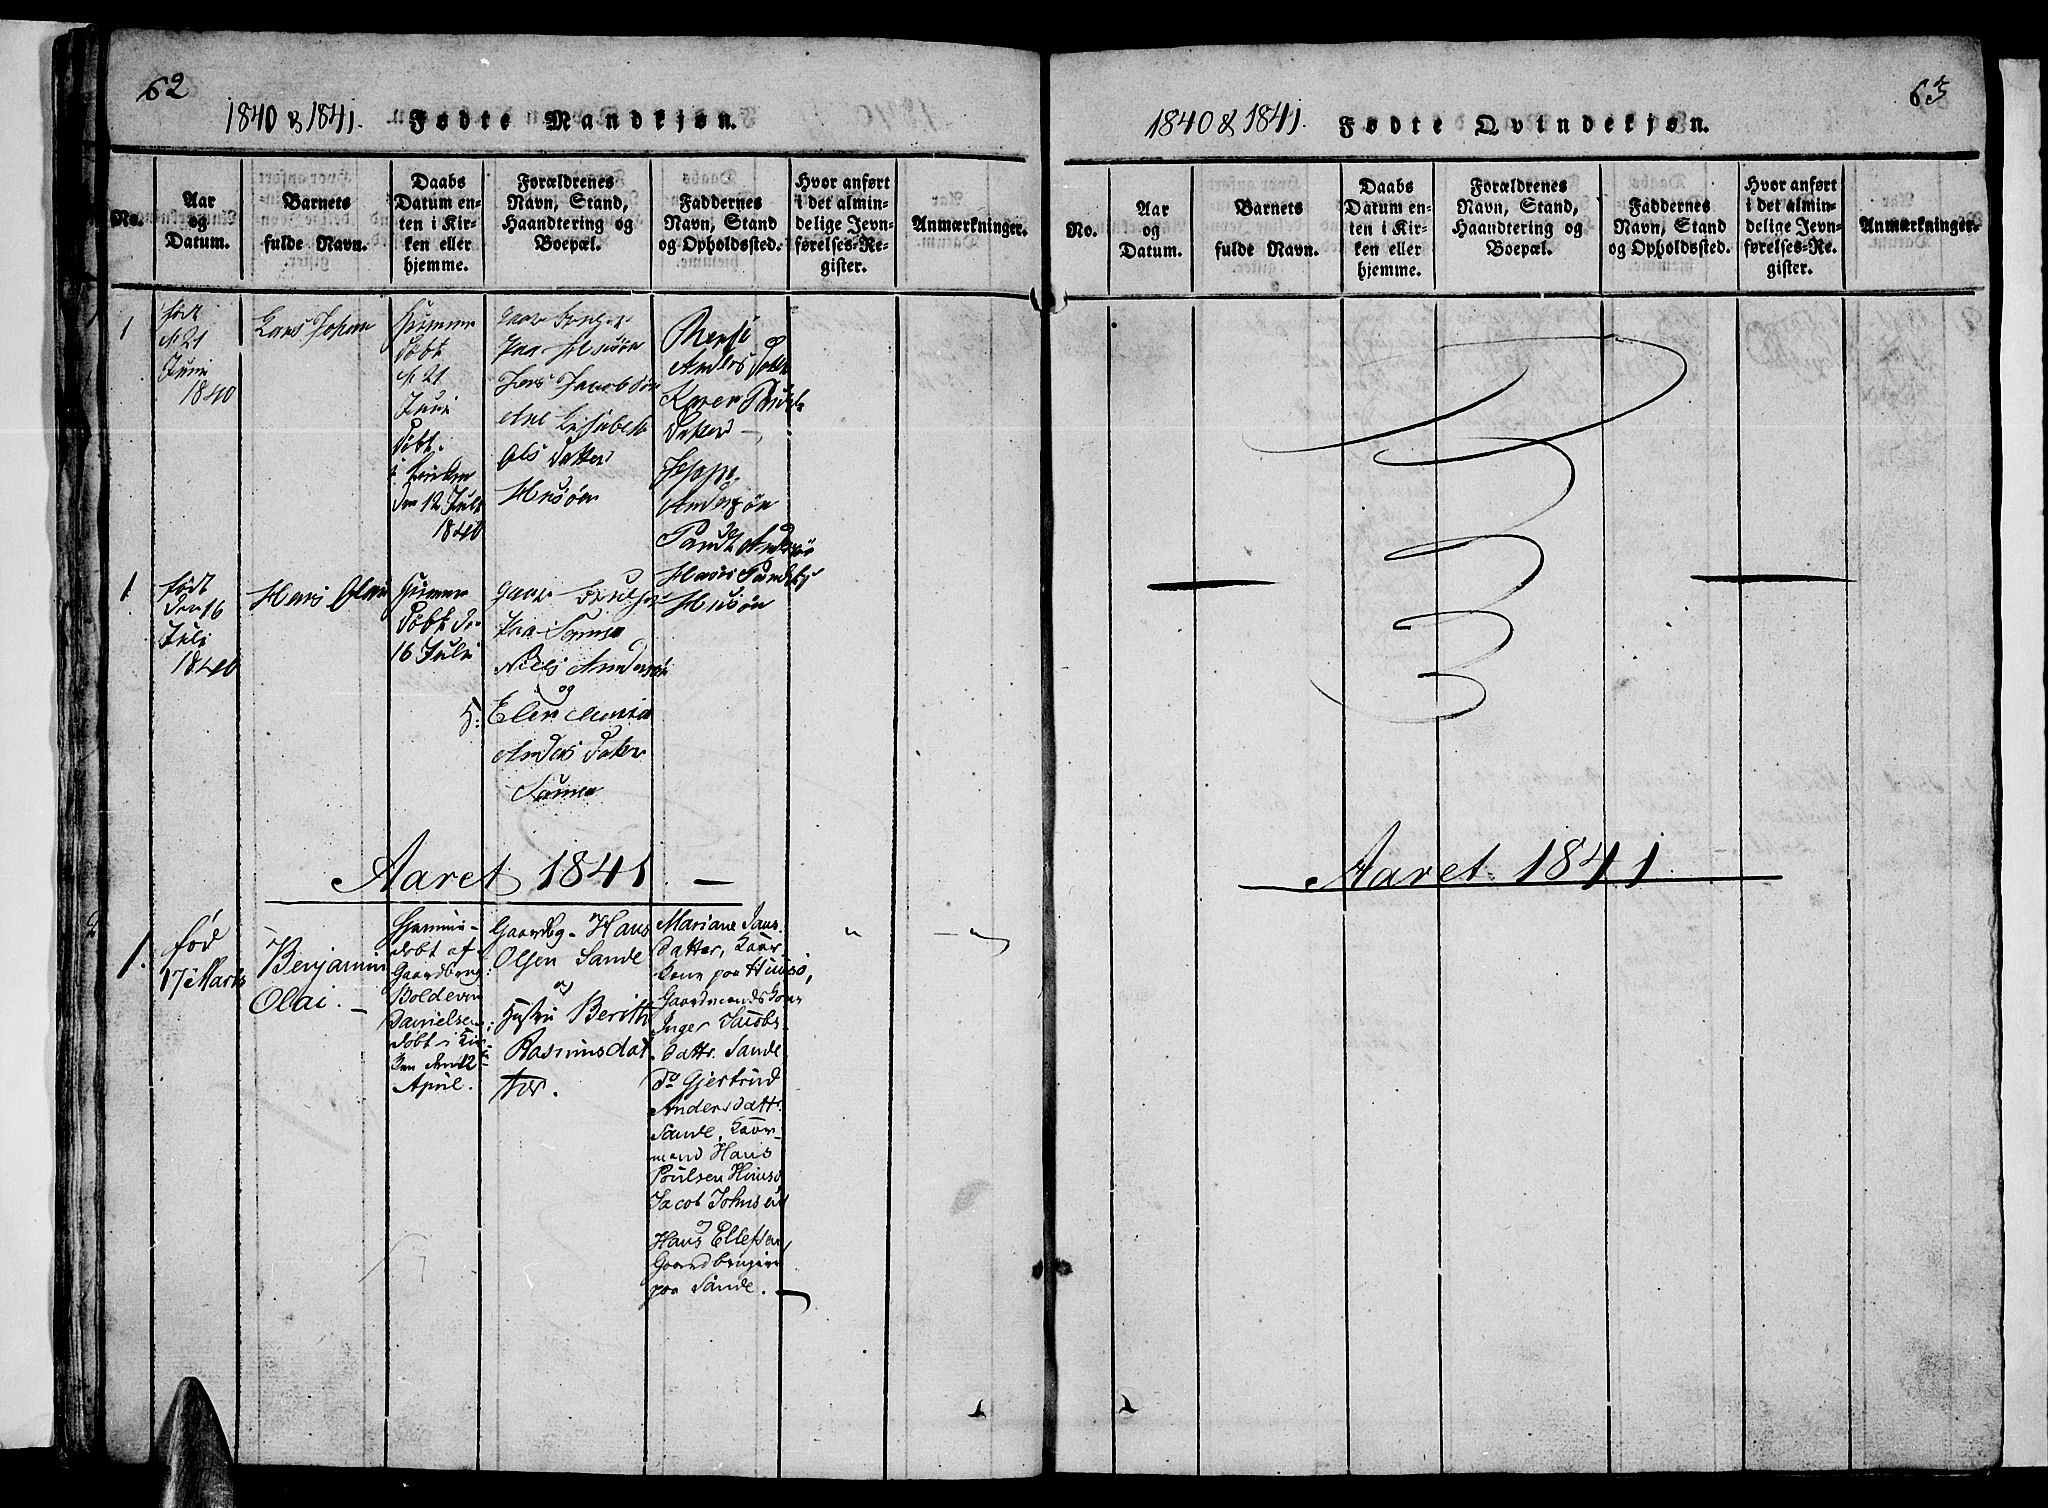 62
1840 & 1841. Fødte Mandkjøn.
No.
Aar
og
Datum.
Barnets
fulde Navn.
Daabs
Datum en-
ten i Kir-
ken eller
hjemme.
Forældrenes
Navn, Stand,
Haandtering og
Boepæl.
Faddernes
Navn, Stand
og Opholdssted.
Hvor anført
i det almin-
delige Jevn-
førelses-Re-
gister.
Anmærkninger.
1
født
d. 21
Juni
1840
Lars Johan
døbt
d. 21
Juni
Døbt
i Kirken
den 12 Juli
1840
Paa Husøen
Jacobsøn
Ane Lisabeth
Ols Datter
Husøen
Anders Dater
Karen
Dater
Jeppe
Andersøn
Husøen
1
født
den 16
Juli
1840
Hans Olai
døbt den
16 Juli
Paa Sanna
Niels Andersøn
og
H: Elen Maria
Anders Dater
Sanna
Aaret 1841. —
1.
fød
17 Marts
Benjamin
Olai. —
Hjemme-
døbt af
Gaardbrug:
Boldevin
Danielsen
døbt i Kir-
ken den 12
April.
Gaardbg. Hans
Olsen Sande
og
Hustru Berith
Rasmusdat
ter.
Mariane Jans
datter, Kaar
kone paa Huusø,
Gaardmandskone
Inger Jacobs
dattr. Sande
Do Gjertrud
Andersdattr.
Sande, Kaar-
mand Hans
Poulsen Huusø
Jacob Johnsen
og
Hans Ellefsen
Gaardbrugere
paa Sande.
63
1840 & 1841. Fødte Qvindekjøn.
No.
Aar
og
Datum.
Barnets
fulde Navn.
Daabs
Datum en-
ten i Kir-
ken eller
hjemme.
Forældrenes
Navn, Stand,
Haandtering og
Boepæl.
Faddernes
Navn, Stand
og Opholdssted.
Hvor anført
i det almin-
delige Jevn-
førelses-Re-
gister.
Anmærkninger.
Aaret 1841.